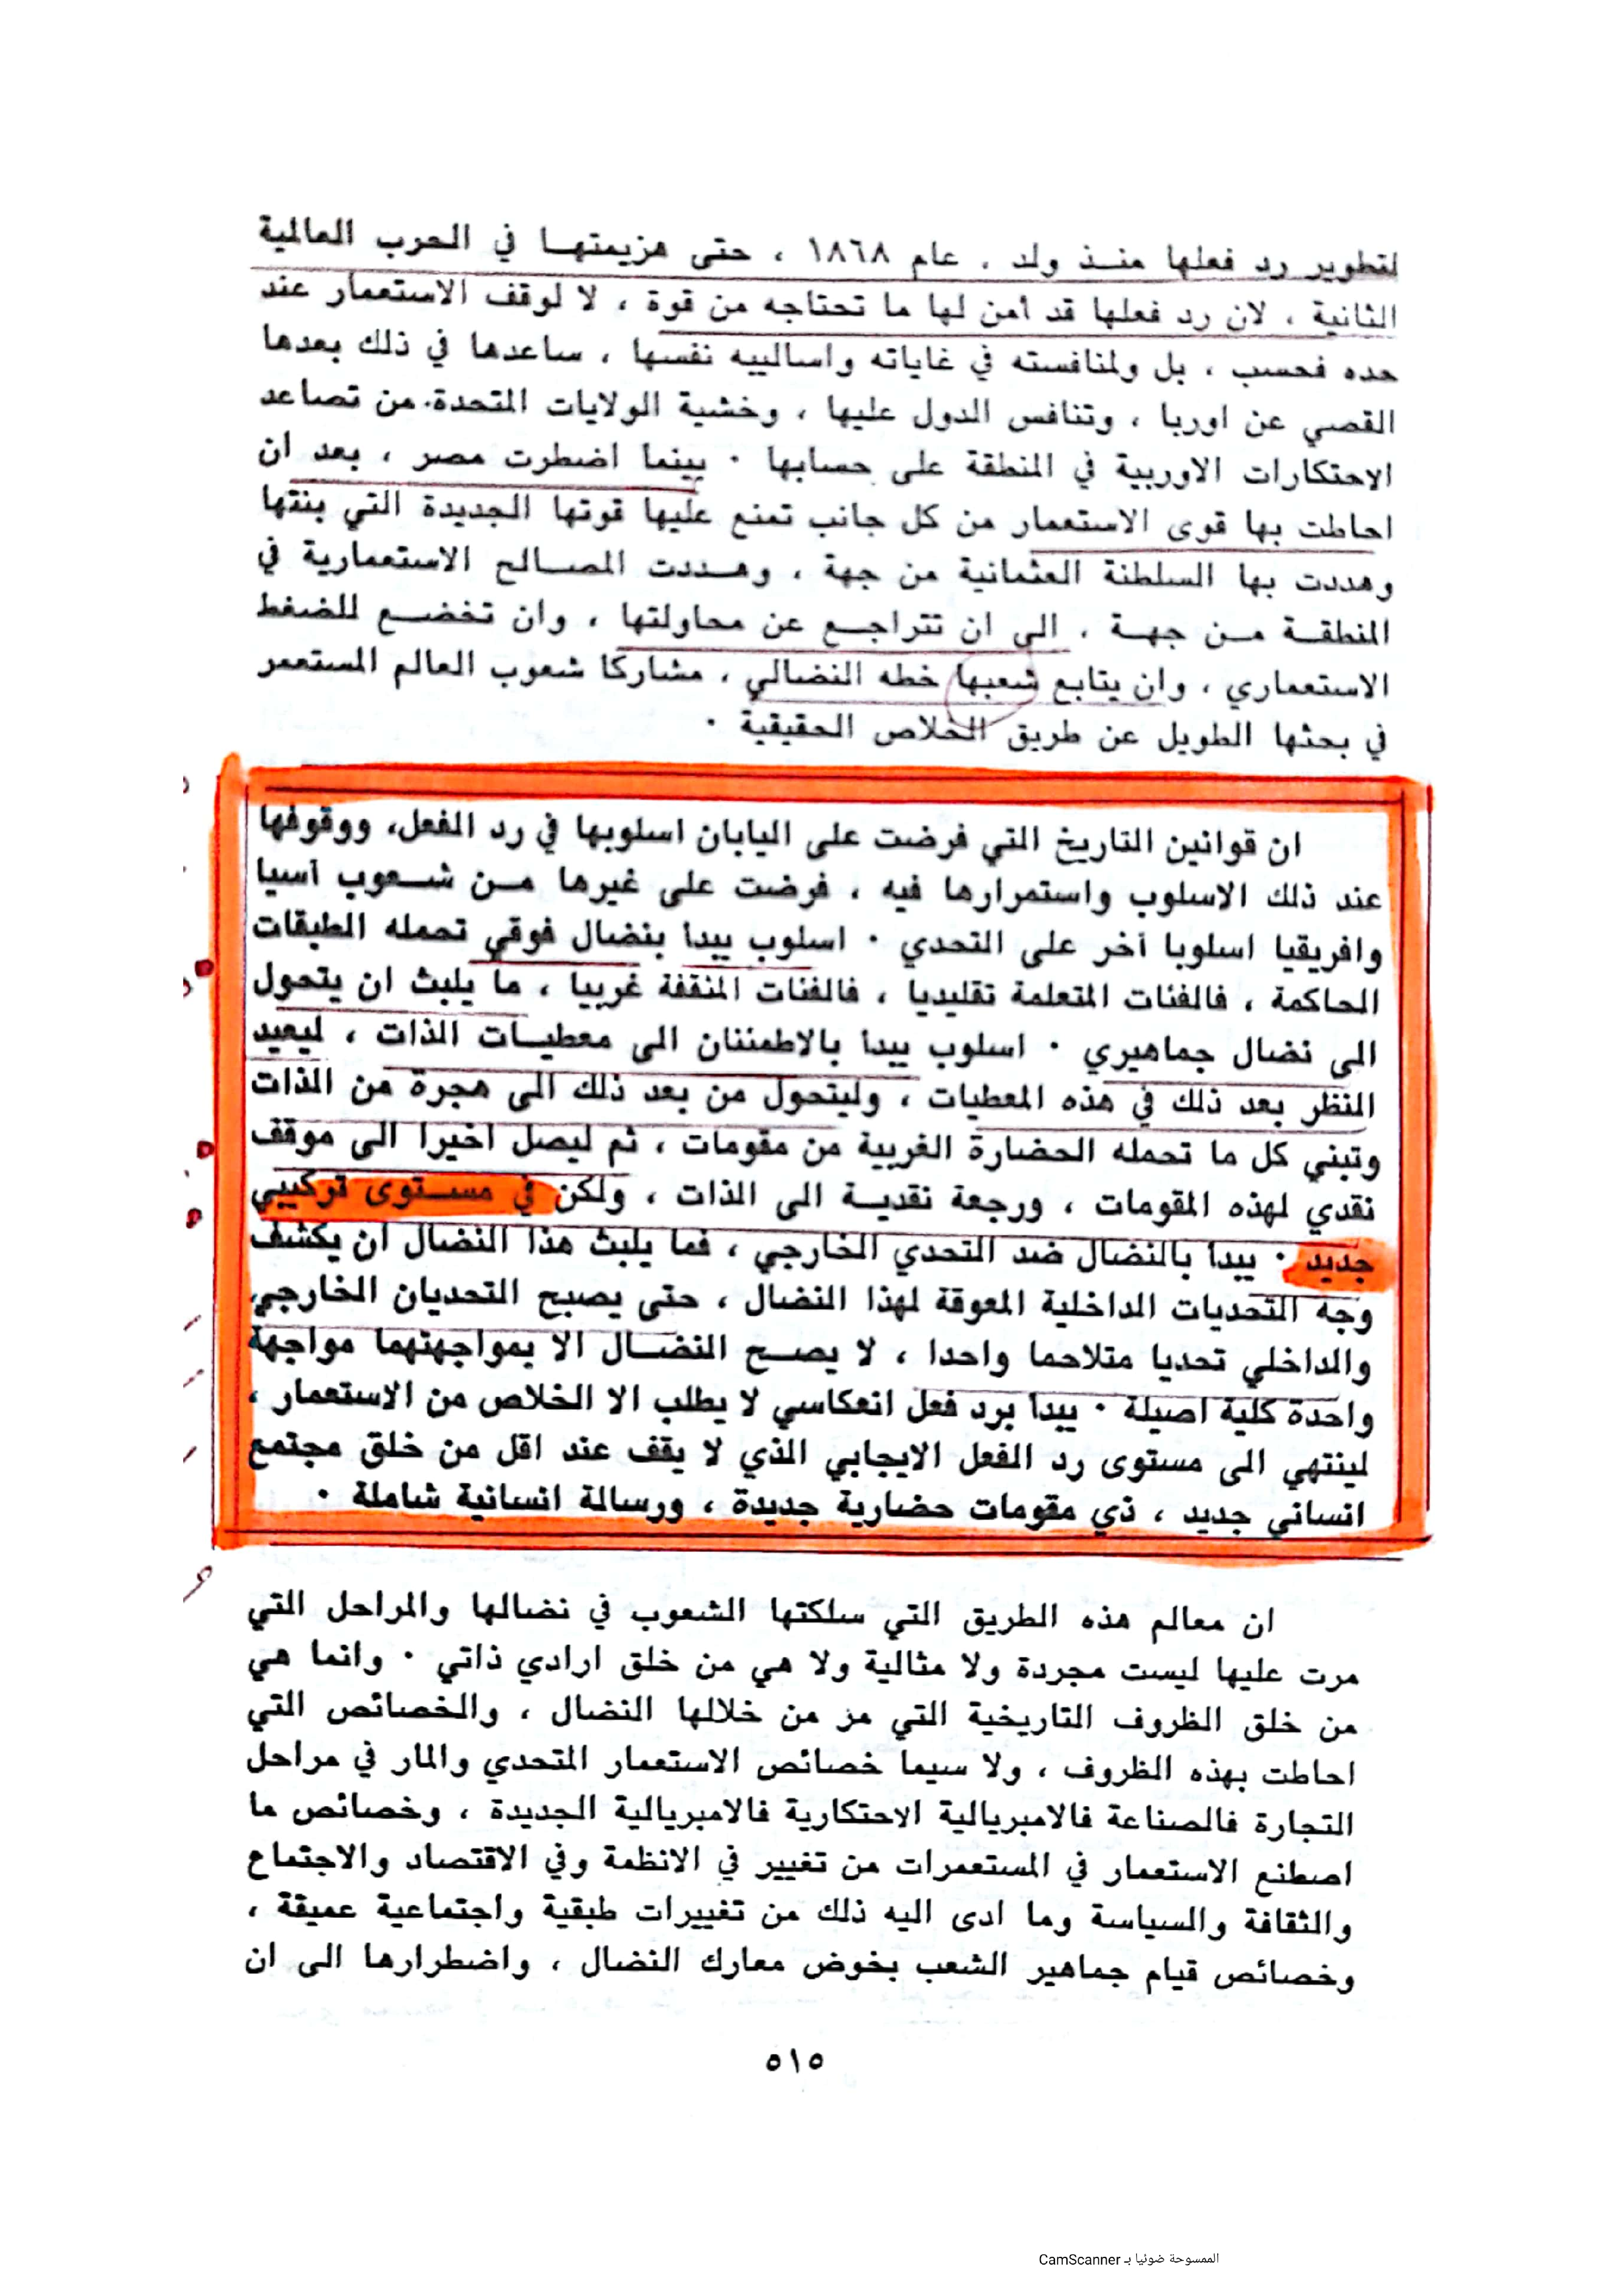 لتطوير رد فعلها منـذ ولد ، عام ١٨٦٨ ، حتى هزيمتهـا في الحرب العالمية
الثانية ، لان رد فعلها قد أمن لها ما تحتاجه من قوة ، لا لوقف الاستعمار عند
حده فحسب ، بل ولمنافسته في غاياته واساليبه نفسها ، ساعدها في ذلك بعدها
القصي عن اوربا ، وتنافس الدول عليها ، وخشية الولايات المتحدة من تصاعد
الاحتكارات الاوربية في المنطقة على حسابها . بينما اضطرت مصر ، بعد ان
احاطت بها قوى الاستعمار من كل جانب تمنع عليها قوتها الجديدة التي بنتها
وهددت بها السلطنة العثمانية من جهة ، وهـددت المصـالح الاستعمارية في
المنطقـة مـن جهـة ، الى ان تتراجـع عن محاولتها ، وان تخضـع للضغط
الاستعماري ، وان يتابع شعبها خطه النضالي ، مشاركا شعوب العالم المستعمر
في بحثها الطويل عن طريق الخلاص الحقيقية .
ان قوانين التاريخ التي فرضت على اليابان اسلوبها في رد الفعل، ووقوفها
عند ذلك الاسلوب واستمرارها فيه ، فرضت على غيرها مـن شـعوب آسيا
وافريقيا اسلوبا آخر على التحدي . اسلوب يبدأ بنضال فوقي تحمله الطبقات
الحاكمة ، فالفئات المتعلمة تقليديا ، فالفئات المثقفة غربيا ، ما يلبث ان يتحول
الى نضال جماهيري . اسلوب يبدأ بالاطمئنان الى معطيـات الذات ، ليعيد
النظر بعد ذلك في هذه المعطيات ، وليتحول من بعد ذلك الى هجرة من الذات
وتبني كل ما تحمله الحضارة الغربية من مقومات ، ثم ليصل اخيرا الى موقف
نقدي لهذه المقومات ، ورجعة نقديـة الى الذات ، ولكن في مسـتوى تركيبي
جديد . يبدأ بالنضال ضد التحدي الخارجي ، فما يلبث هذا النضال ان يكشف
وجه التحديات الداخلية المعوقة لهذا النضال ، حتى يصبح التحديان الخارجي
والداخلي تحديا متلاحما واحدا ، لا يصـح النضـال الا بمواجهتهما مواجهة
واحدة كلية اصيلة . يبدأ برد فعل انعكاسي لا يطلب الا الخلاص من الاستعمار ،
لينتهي الى مستوى رد الفعل الايجابي الذي لا يقف عند اقل من خلق مجتمع
انساني جديد ، ذي مقومات حضارية جديدة ، ورسالة انسانية شاملة .
ان معالم هذه الطريق التي سلكتها الشعوب في نضالها والمراحل التي
مرت عليها ليست مجردة ولا مثالية ولا هي من خلق ارادي ذاتي . وانما هي
من خلق الظروف التاريخية التي مر من خلالها النضال ، والخصائص التي
احاطت بهذه الظروف ، ولا سيما خصائص الاستعمار المتحدي والمار في مراحل
التجارة فالصناعة فالامبريالية الاحتكارية فالامبريالية الجديدة ، وخصائص ما
اصطنع الاستعمار في المستعمرات من تغيير في الانظمة وفي الاقتصاد والاجتماع
والثقافة والسياسة وما ادى اليه ذلك من تغييرات طبقية واجتماعية عميقة ،
وخصائص قيام جماهير الشعب بخوض معارك النضال ، واضطرارها الى ان
٥١٥
الممسوحة ضوئيا بـ CamScanner